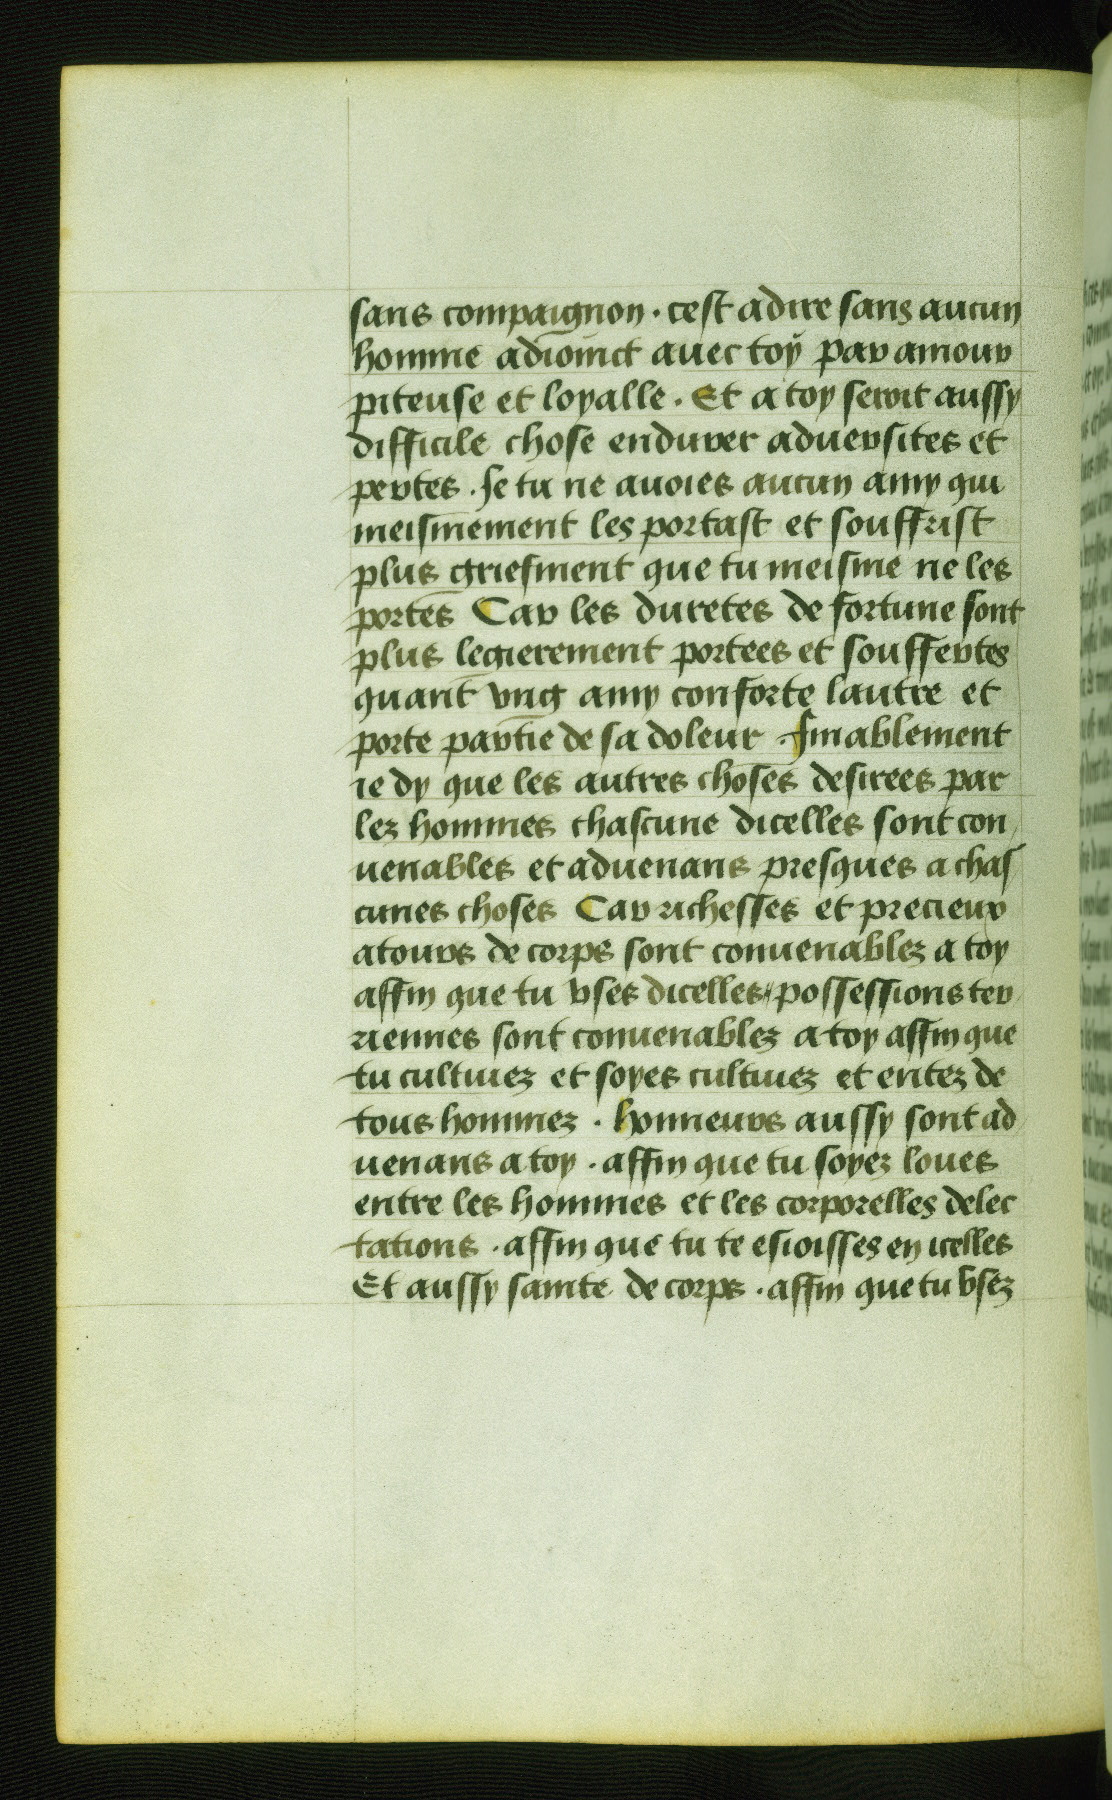 sans compaignon · cest adire sans aucun
homme adioinct auec toy par amour
piteuse et loyalle · Et a toy seroit aussy
difficile chose endurer aduersites et
pertes · se tu ne auoies aucun amy qui
meismement les portast et souffrist
plus griefment que tu meisme ne les
portes Car les duretes de fortune sont
plus legierement portees et souffertes
quant vng amy conforte lautre et
porte partie de sa doleur · finablement
ie dy que les autres choses desirees par
lez hommes chascune dicelles sont con
uenables et aduenans presques a chas
cunes choses Car richesses et precieux
atours de corps sont conuenablez a toy
affin que tu vses dicelles / possessions ter
riennes sont conuenablez a toy affin que
tu cultiuez et soyes cultiuez et entez de
tous hommez · honneurs aussy sont ad
uenans a toy · affin que tu soyez loues
entre les hommes et les corporelles delec
tations · affin que tu te esioisses en icelles
Et aussy sainte de corps · affin que tu vsez